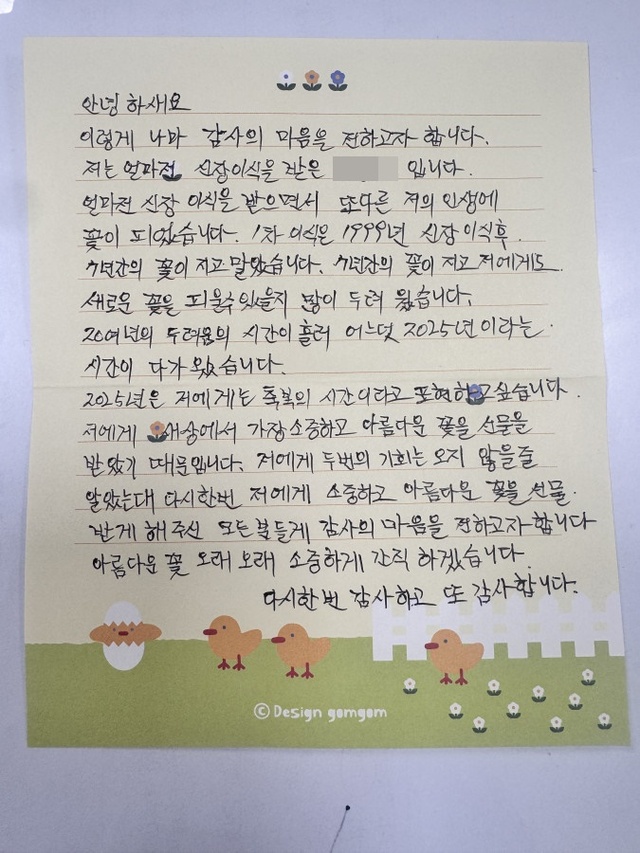 안녕 하세요
이렇게 나마 감사의 마음을 전하고자 합니다.
저는 얼마전 신장이식을 받은 입니다.
얼마전 신장 이식을 받으면서 또다른 저의 인생에
꽃이 피었습니다. 1차 이식은 1999년 신장 이식후.
7년간의 꽃이 지고 말았습니다. 7년간의 꽃이 지고 저에게도
새로운 꽃을 피울수 있을지 많이 두려 웠습니다.
20여년의 두려움의 시간이 흘러 어느덧 2025년 이라는
시간이 다가 왔습니다.
2025년은 저에게는 축복의 시간이라고 표현하고싶습니다.
저에게 세상에서 가장 소중하고 아름다운 꽃을 선물을
받았기 때문입니다. 저에게 두번의 기회는 오지 않을줄
알았는대 다시한번 저에게 소중하고 아름다운 꽃을 선물.
받게 해 주신 모든분들게 감사의 마음을 전하고자 합니다
아름다운 꽃 오래 오래 소중하게 간직 하겠습니다.
다시한번 감사하고 또 감사합니다.
© Design gomgom